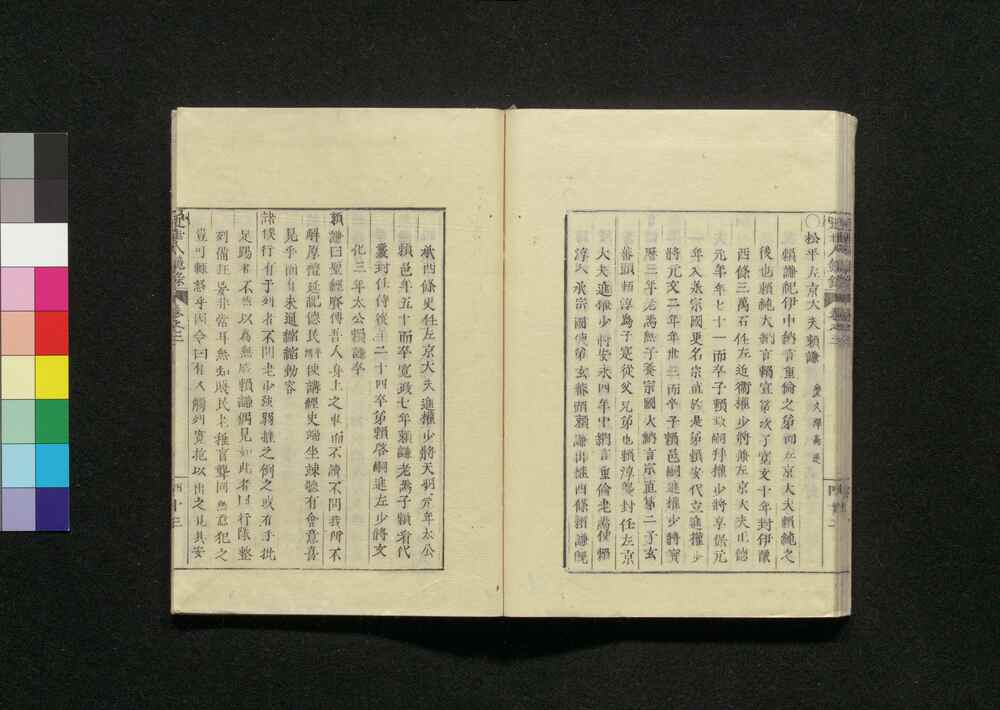 ○松平左京大夫頼謙
頼謙紀伊中納言重倫之弟而左京大夫頼純之
後也頼純大納言頼宣第次子寛文十年封伊豫
西條三萬石任左近衛權少將兼左京大夫正德
元年年七十一而卒子頼致嗣拜權少將享保元
年入承宗國更名宗直於是弟頼安代立進權少
將元文二年年世三而卒子頼邑嗣進權少將寳
暦三年老為無子養宗國大納言宗直第二子玄
蕃頭頼淳為子寔從父兄弟也頼淳襲封任左京
大夫進權少將安永四年中納言重倫老為使頼
淳入承宗國使弟玄蕃頭頼謙出継西條頼謙既
承西條更任左京大夫進權少將天明元年太公
頼邑年五十而卒寛政七年頼謙老為子頼看代
襲封任侍從年二十四卒弟頼啓嗣進左少將文
化三年太公頼謙卒
頼謙曰聖經賢傳吾人身上之事而不讀不問我所不
解厚禮延記德民使講經史端坐竦聽有會意喜
見乎面有未通縮縮動容
諸侯行有于列者不問老少強弱推之例之或有手批
足踢者不然以為無威頼謙偶見如此者曰行陈整
列備狂暴非常耳然如賤民老稚盲聾固無意犯之
豈可輙怒乎因令曰有人觸列寛抱以出之見其安
近世人鏡録 巻之三
四十三